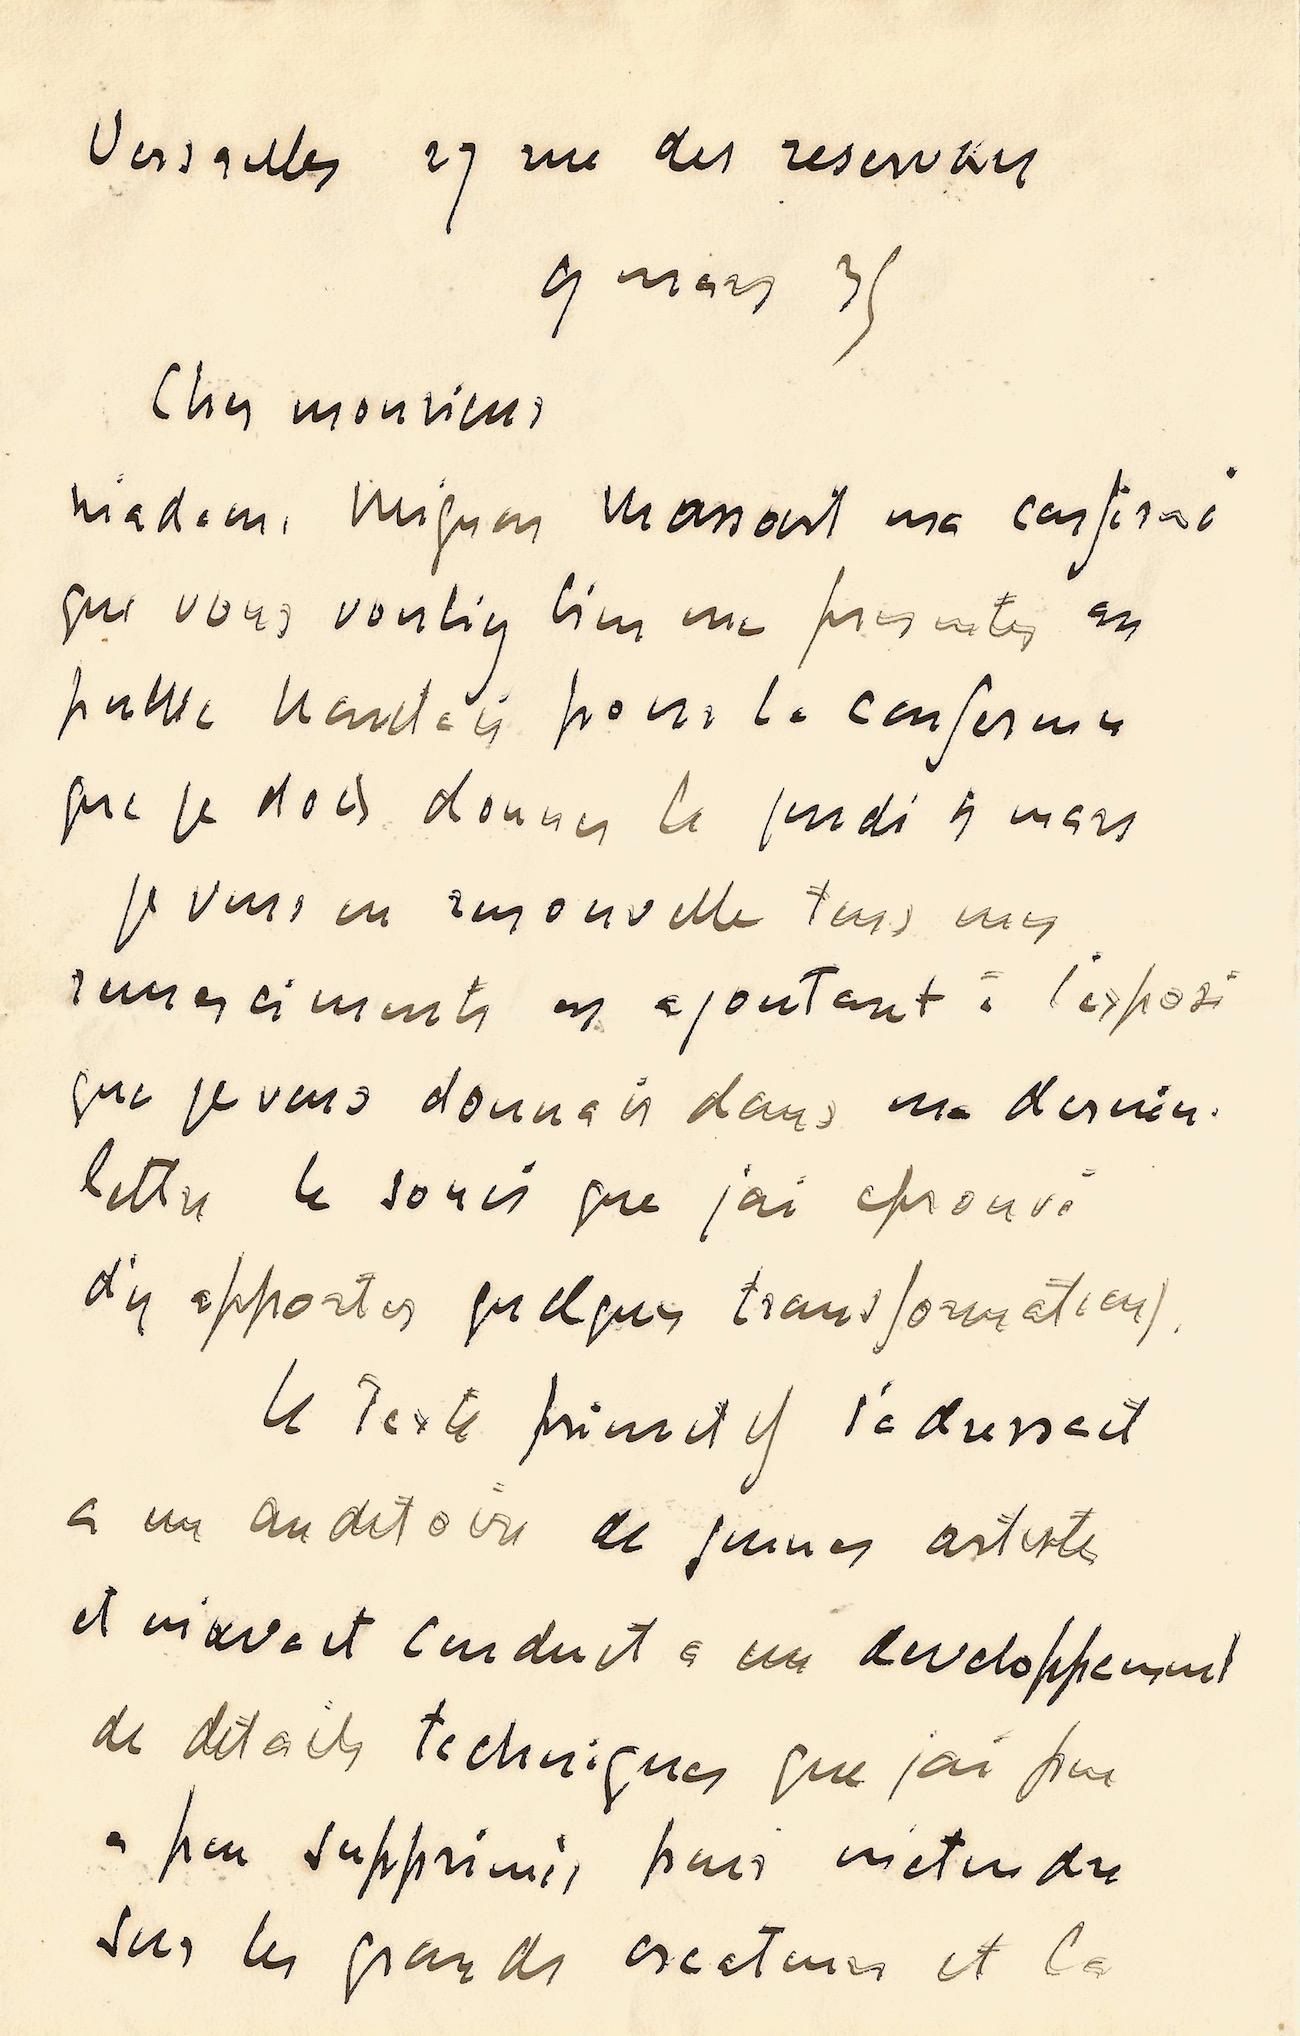 Versailles 27 rue des reservoirs
9 mars 35
Cher monsieur
madame Mignon Massart ma confirmé
que vous vouliez bien me presenter au
public Nantais pour la conference
que je dois donner le jeudi mars
je vous en renouvelle tous mes
remerciments en ajoutant à l'exposé
que je vous donnais dans ma derniere
lettre le soucis que j'ai eprouvé
d'y apporter quelques transformations.
le texte primitif s'adressait
a un auditoire de jeunes artistes
et m'avait conduit a un developpement
de details techniques que j'ai peu
a peu supprimés pour m'etendre
sur les grands createurs et la